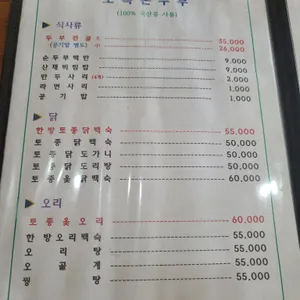 (100% 국산콩 사용)
▶ 식사류
두부전골 大 35,000
(공기밥 별도) 小 26,000
순두부백반 9,000
산채비빔밥 9,000
만두사리 (4개) 2,000
라면사리 1,000
공기밥 1,000
▶ 닭
한방토종닭백숙 55,000
토종닭백숙 50,000
토종닭도가니 50,000
토종닭도리탕 50,000
토종옻닭백숙 60,000
▶ 오리
토종옻오리 60,000
한방오리백숙 55,000
오리탕 55,000
오골계 55,000
꿩탕 55,000